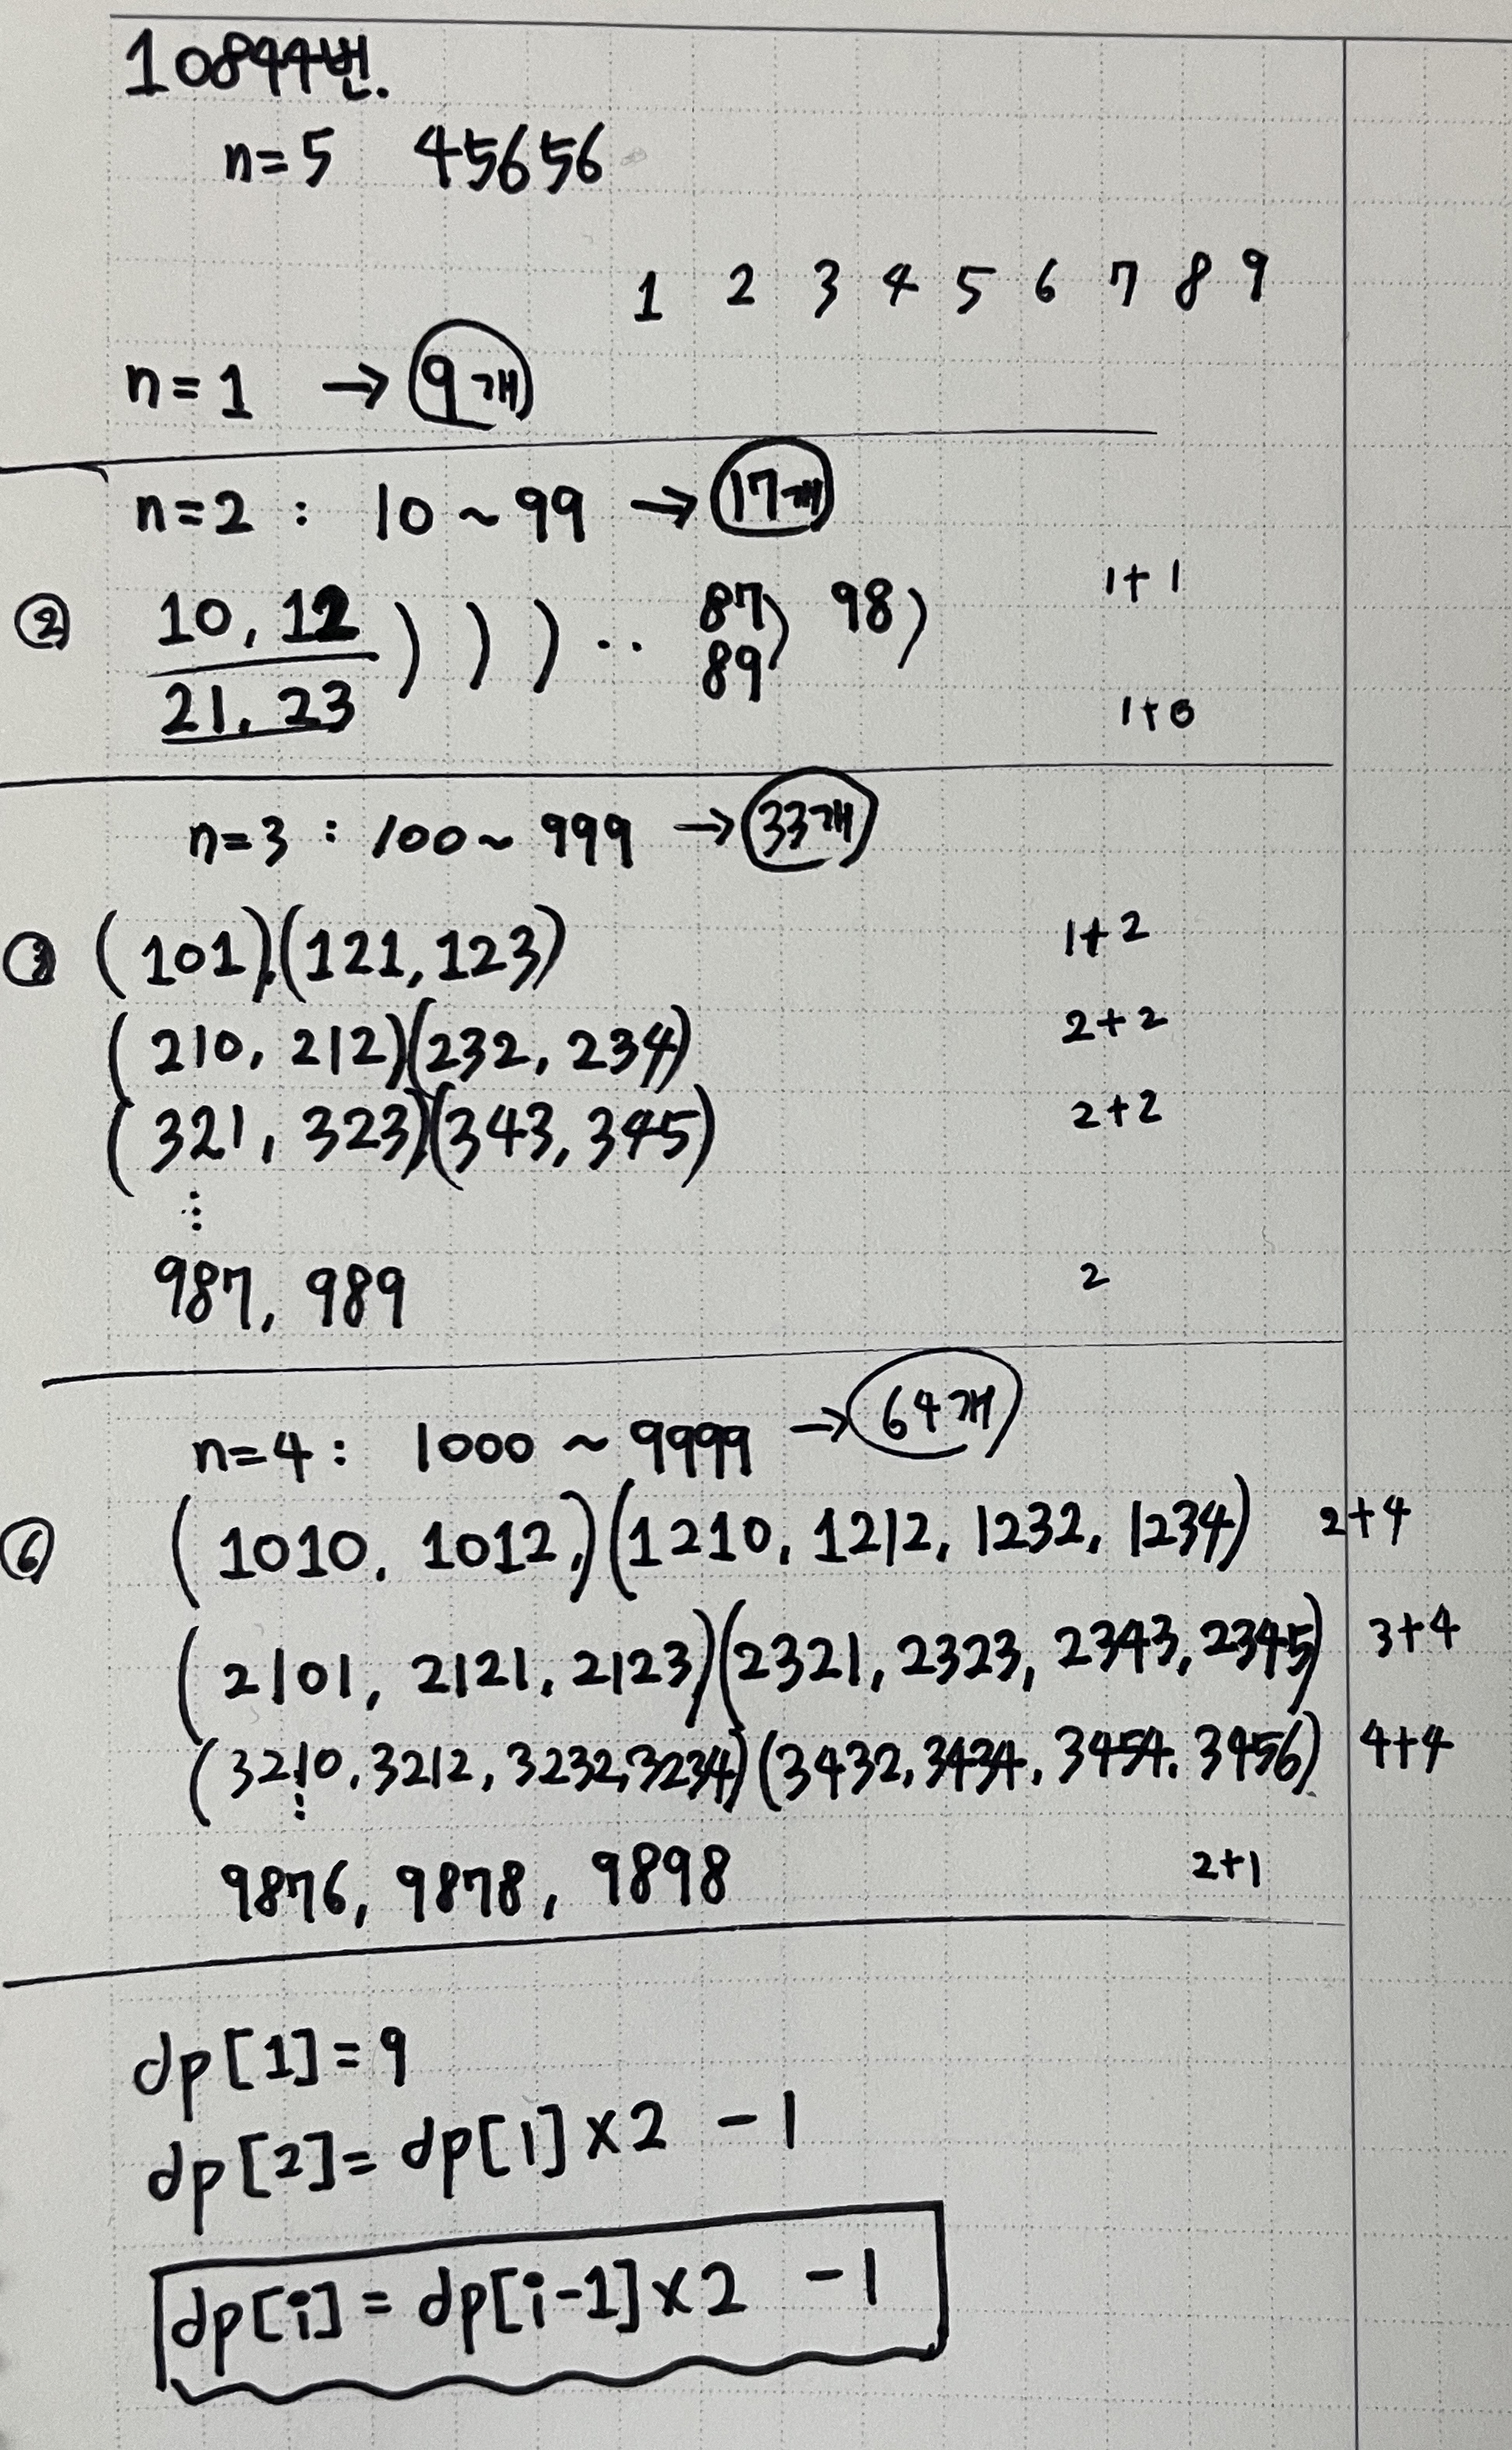 10844번.
n=5 45656
1 2 3 4 5 6 7 8 9
n=1 → 9개
n=2 : 10 ~ 99 → 17개
② 10, 12 ) ) ) ·· 87) 98) 1+1
21, 23 89 1+0
n=3 : 100 ~ 999 → 33개
③ (101),(121, 123) 1+2
(210, 212)(232, 234) 2+2
(321, 323),(343, 345) 2+2
⋮
987, 989 2
n=4 : 1000 ~ 9999 → 64개
⑥ (1010, 1012,)(1210, 1212, 1232, 1234) 2+4
(2101, 2121, 2123)(2321, 2323, 2343, 2345) 3+4
(3210, 3212, 3232, 3234)(3432, 3434, 3454, 3456) 4+4
⋮
9876, 9878, 9898 2+1
dp[1]=9
dp[2]= dp[1]×2 -1
dp[i] = dp[i-1]×2 -1